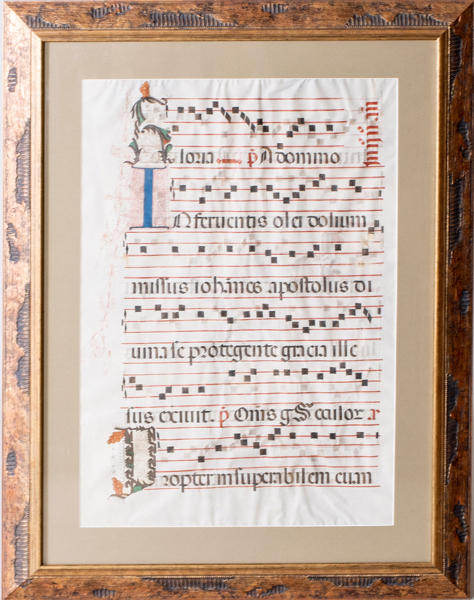 Gloria p̄ A domino
In feruentis olei dolium
missus iohānes apostolus di
uina se protegente gracia ille
sus exiuit. p̄ Om̄s g Seculor
Propter insuperabilem euan